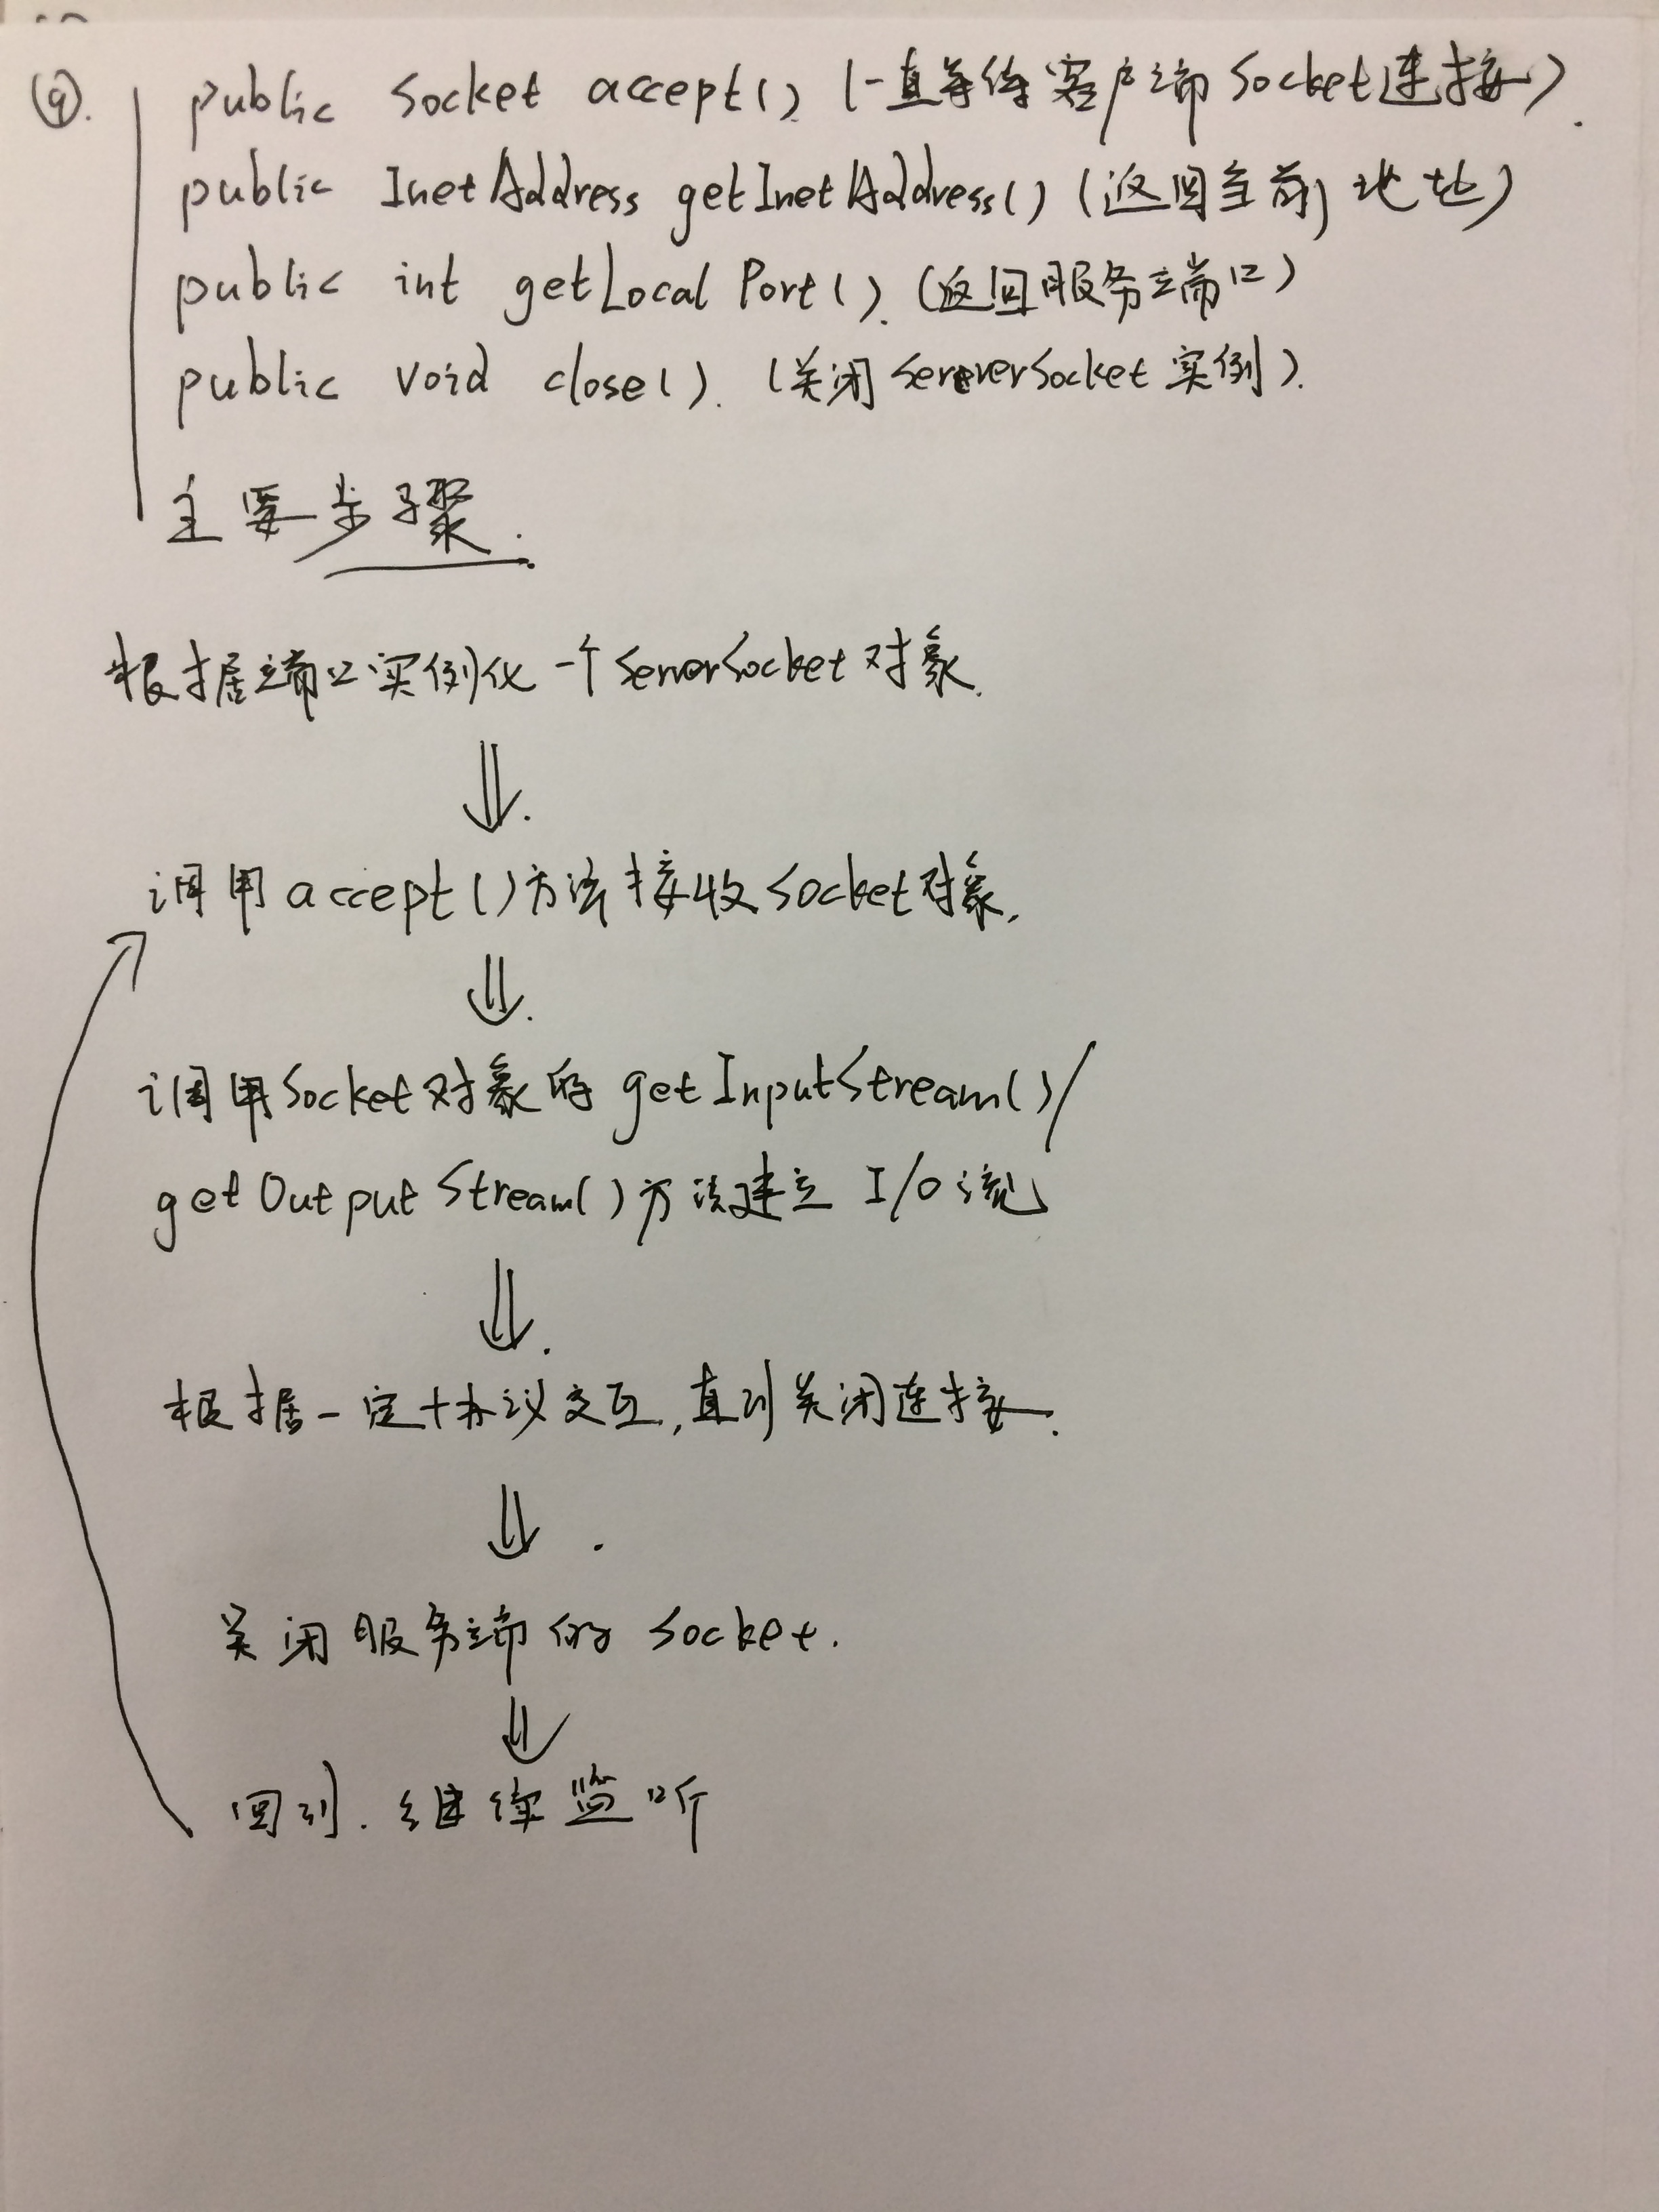 ⑨. public Socket accept() (一直等待客户端Socket连接).
public InetAddress getInetAddress() (返回当前地址)
public int getLocalPort(). (返回服务端口)
public void close(). (关闭ServerSocket实例).
主要步骤.
根据端口实例化一个ServerSocket对象.
⇓.
调用accept()方法接收Socket对象.
⇓.
调用Socket对象的getInputStream()/
getOutputStream()方法建立 I/O流
⇓.
根据一定协议交互,直到关闭连接.
⇓.
关闭服务端的 Socket.
⇓
回到.继续监听